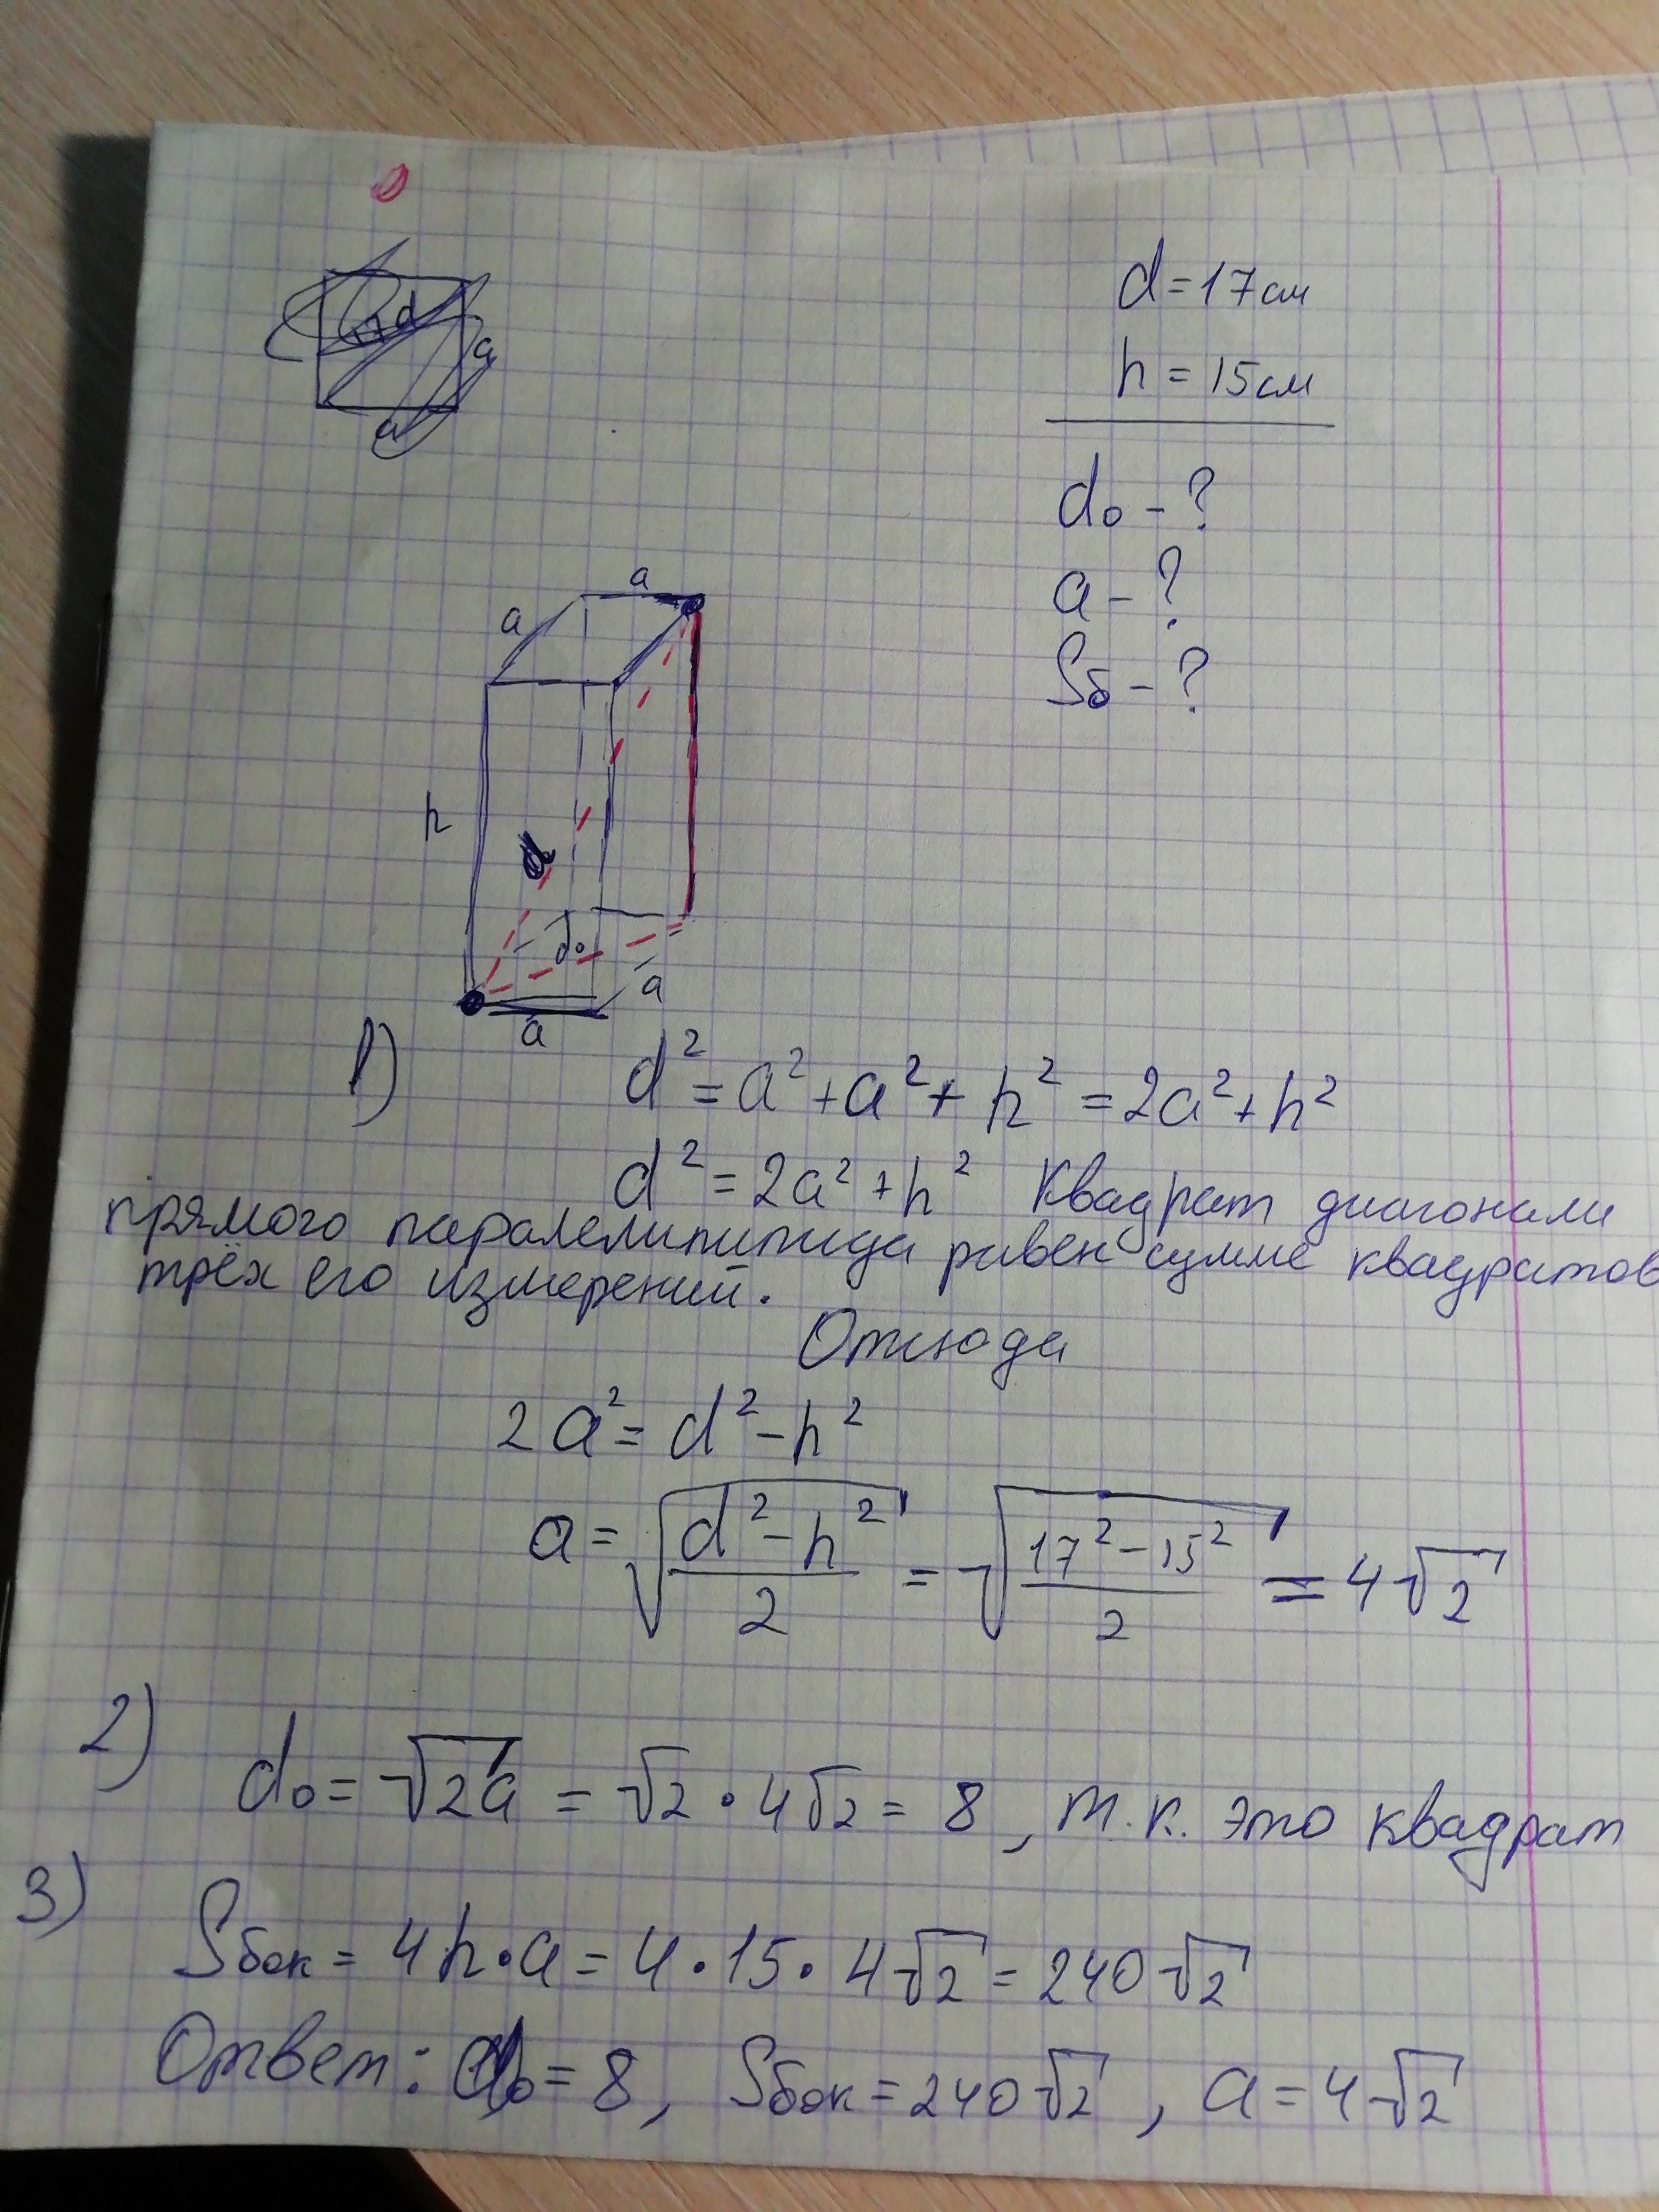 d
a
a
d = 17 см
h = 15 см
d₀ - ?
a - ?
Sб - ?
a
a
h
d
d₀
a
a
1) d² = a² + a² + h² = 2a² + h²
d² = 2a² + h² Квадрат диагонали
прямого паралелипипида равен сумме квадратов
трёх его измерений.
Отсюда
2a² = d² - h²
a = √((d² - h²)/2) = √((17² - 15²)/2) = 4√2
2) d₀ = √2a = √2 · 4√2 = 8, т.к. это квадрат
3) Sбок = 4h · a = 4 · 15 · 4√2 = 240√2
Ответ: d₀ = 8, Sбок = 240√2, a = 4√2